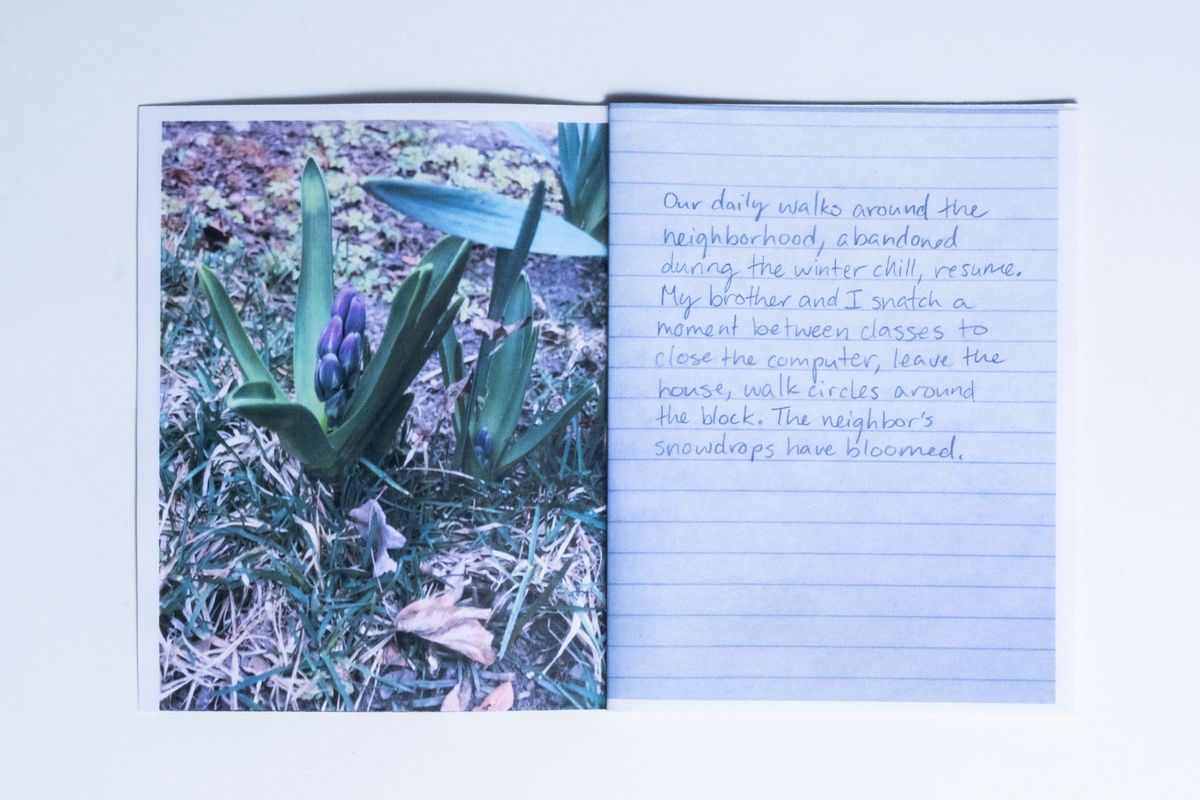 Our daily walks around the
neighborhood, abandoned
during the winter chill, resume.
My brother and I snatch a
moment between classes to
close the computer, leave the
house, walk circles around
the block. The neighbor's
snowdrops have bloomed.